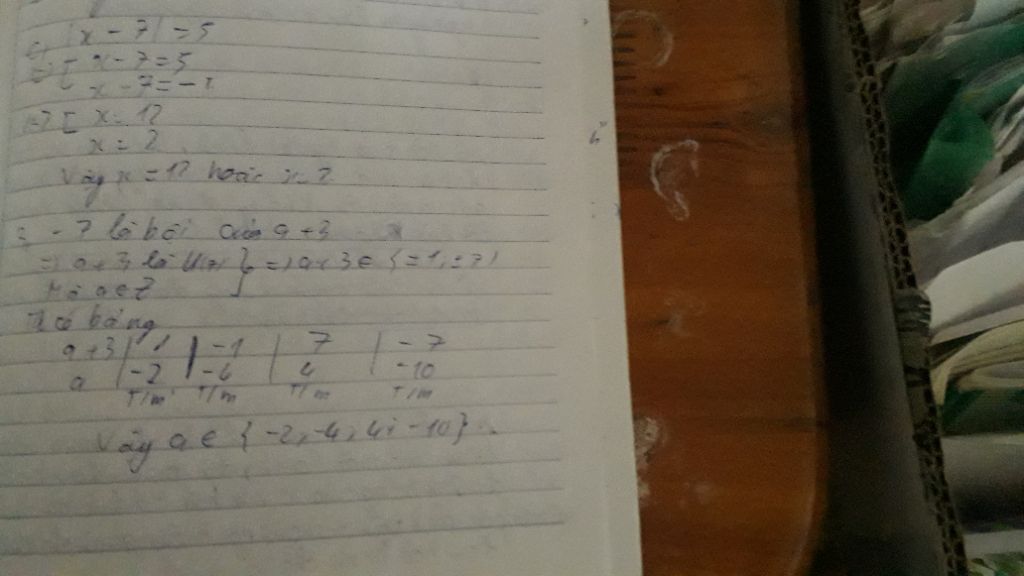 c, |x - 7| = 5
=> [ x - 7 = 5
x - 7 = -5
=> [ x = 12
x = 2
Vậy x = 12 hoặc x = 2
- 7 là bội của a + 3
=> a + 3 là Ư(7) } => a + 3 ∈ {±1, ±7}
Mà a ∈ Z
Ta có bảng
a + 3 | 1 | -1 | 7 | -7
a | -2 | -4 | 4 | -10
T/m T/m T/m T/m
Vậy a ∈ { -2, -4, 4; -10}